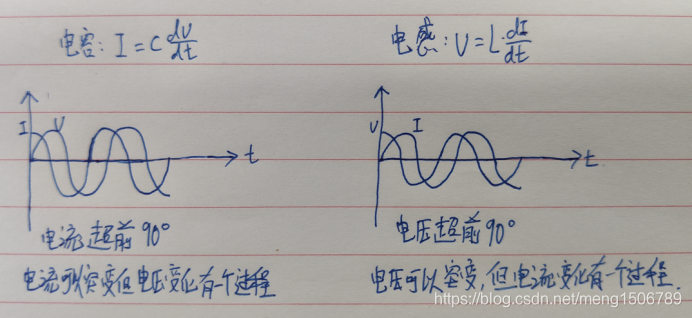 电容: I = C dU/dt
I U t
电流超前 90°
电流可以突变但电压变化有一个过程
电感: U = L·dI/dt
U I t
电压超前 90°
电压可以突变, 但电流变化有一个过程.
https://blog.csdn.net/meng1506789